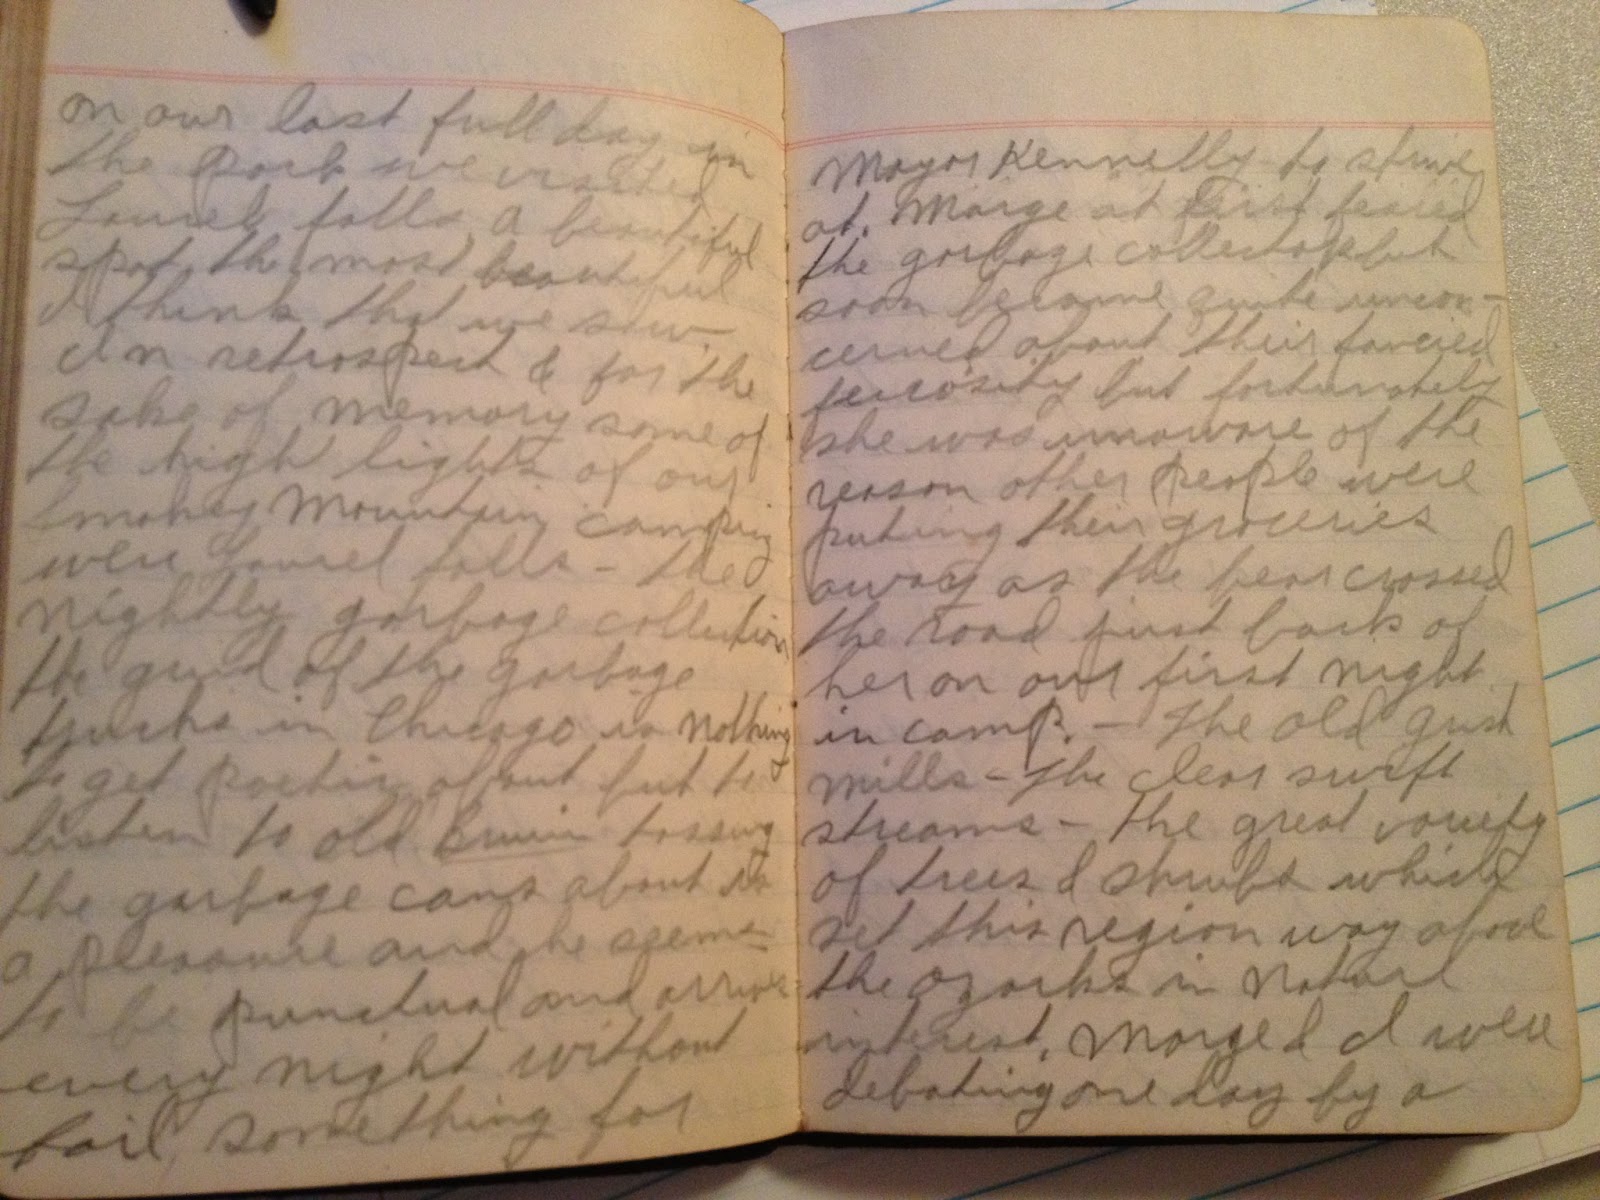 on our last full day in
the park we visited
Laurel falls a beautiful
spot, the most beautiful
I think that we saw.
In retrospect & for the
sake of memory some of
the high lights of our
Smokey Mountain camping
were Laurel falls - the
nightly garbage collection
the grind of the garbage
trucks in Chicago is nothing
to get poetic about but to
listen to old Bruin tossing
the garbage cans about is
a pleasure and he seems
to be punctual and arrives
every night without
fail, something for
Mayor Kennelly to strive
at. Marge at first feared
the garbage collectors but
soon became quite uncon-
cerned about their fancied
ferocity but fortunately
she was unaware of the
reason other people were
puting their groceries
away as the bear crossed
the road just back of
her on our first night
in camp. - The old grist
mills - the clear swift
streams - the great variety
of trees & shrubs which
set this region way above
the Ozarks in natural
interest. Marge & I were
debating one day by a